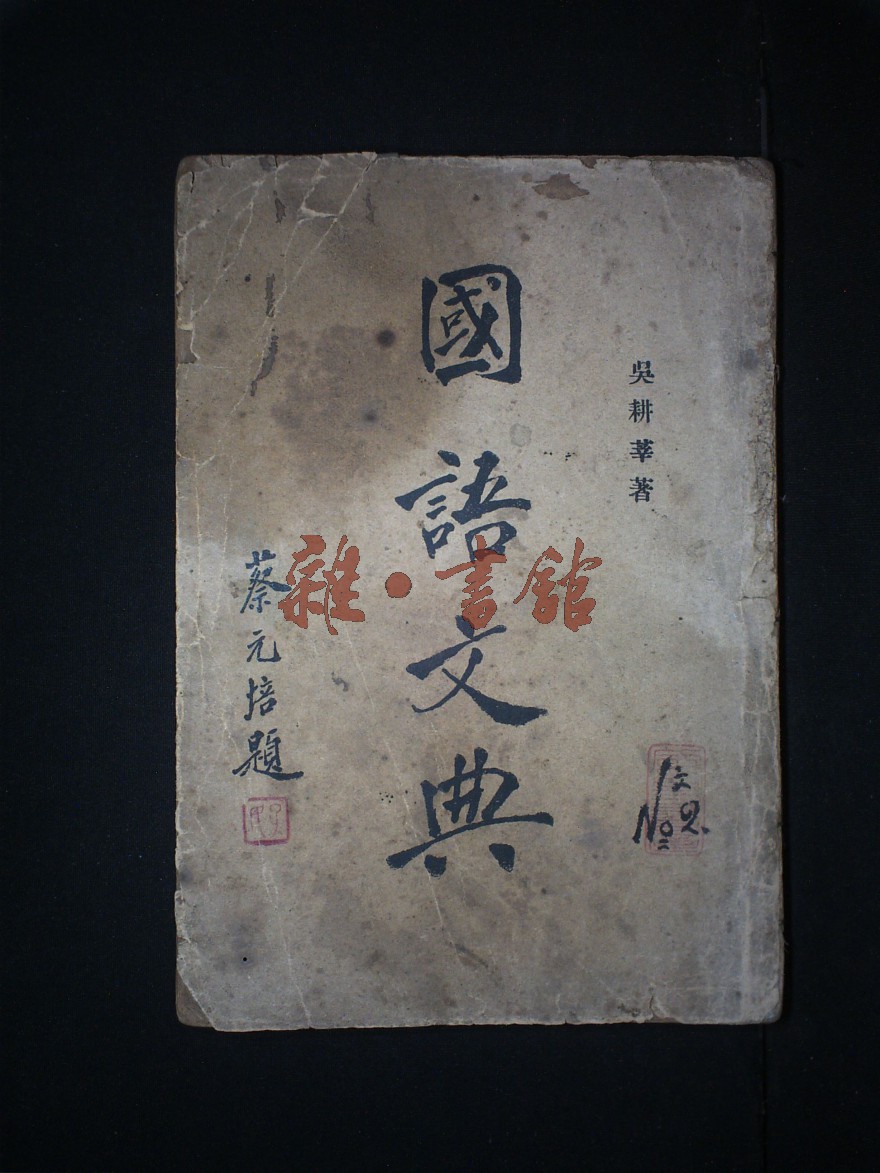 吳耕莘著
國語文典
蔡元培題
雜·書館
No